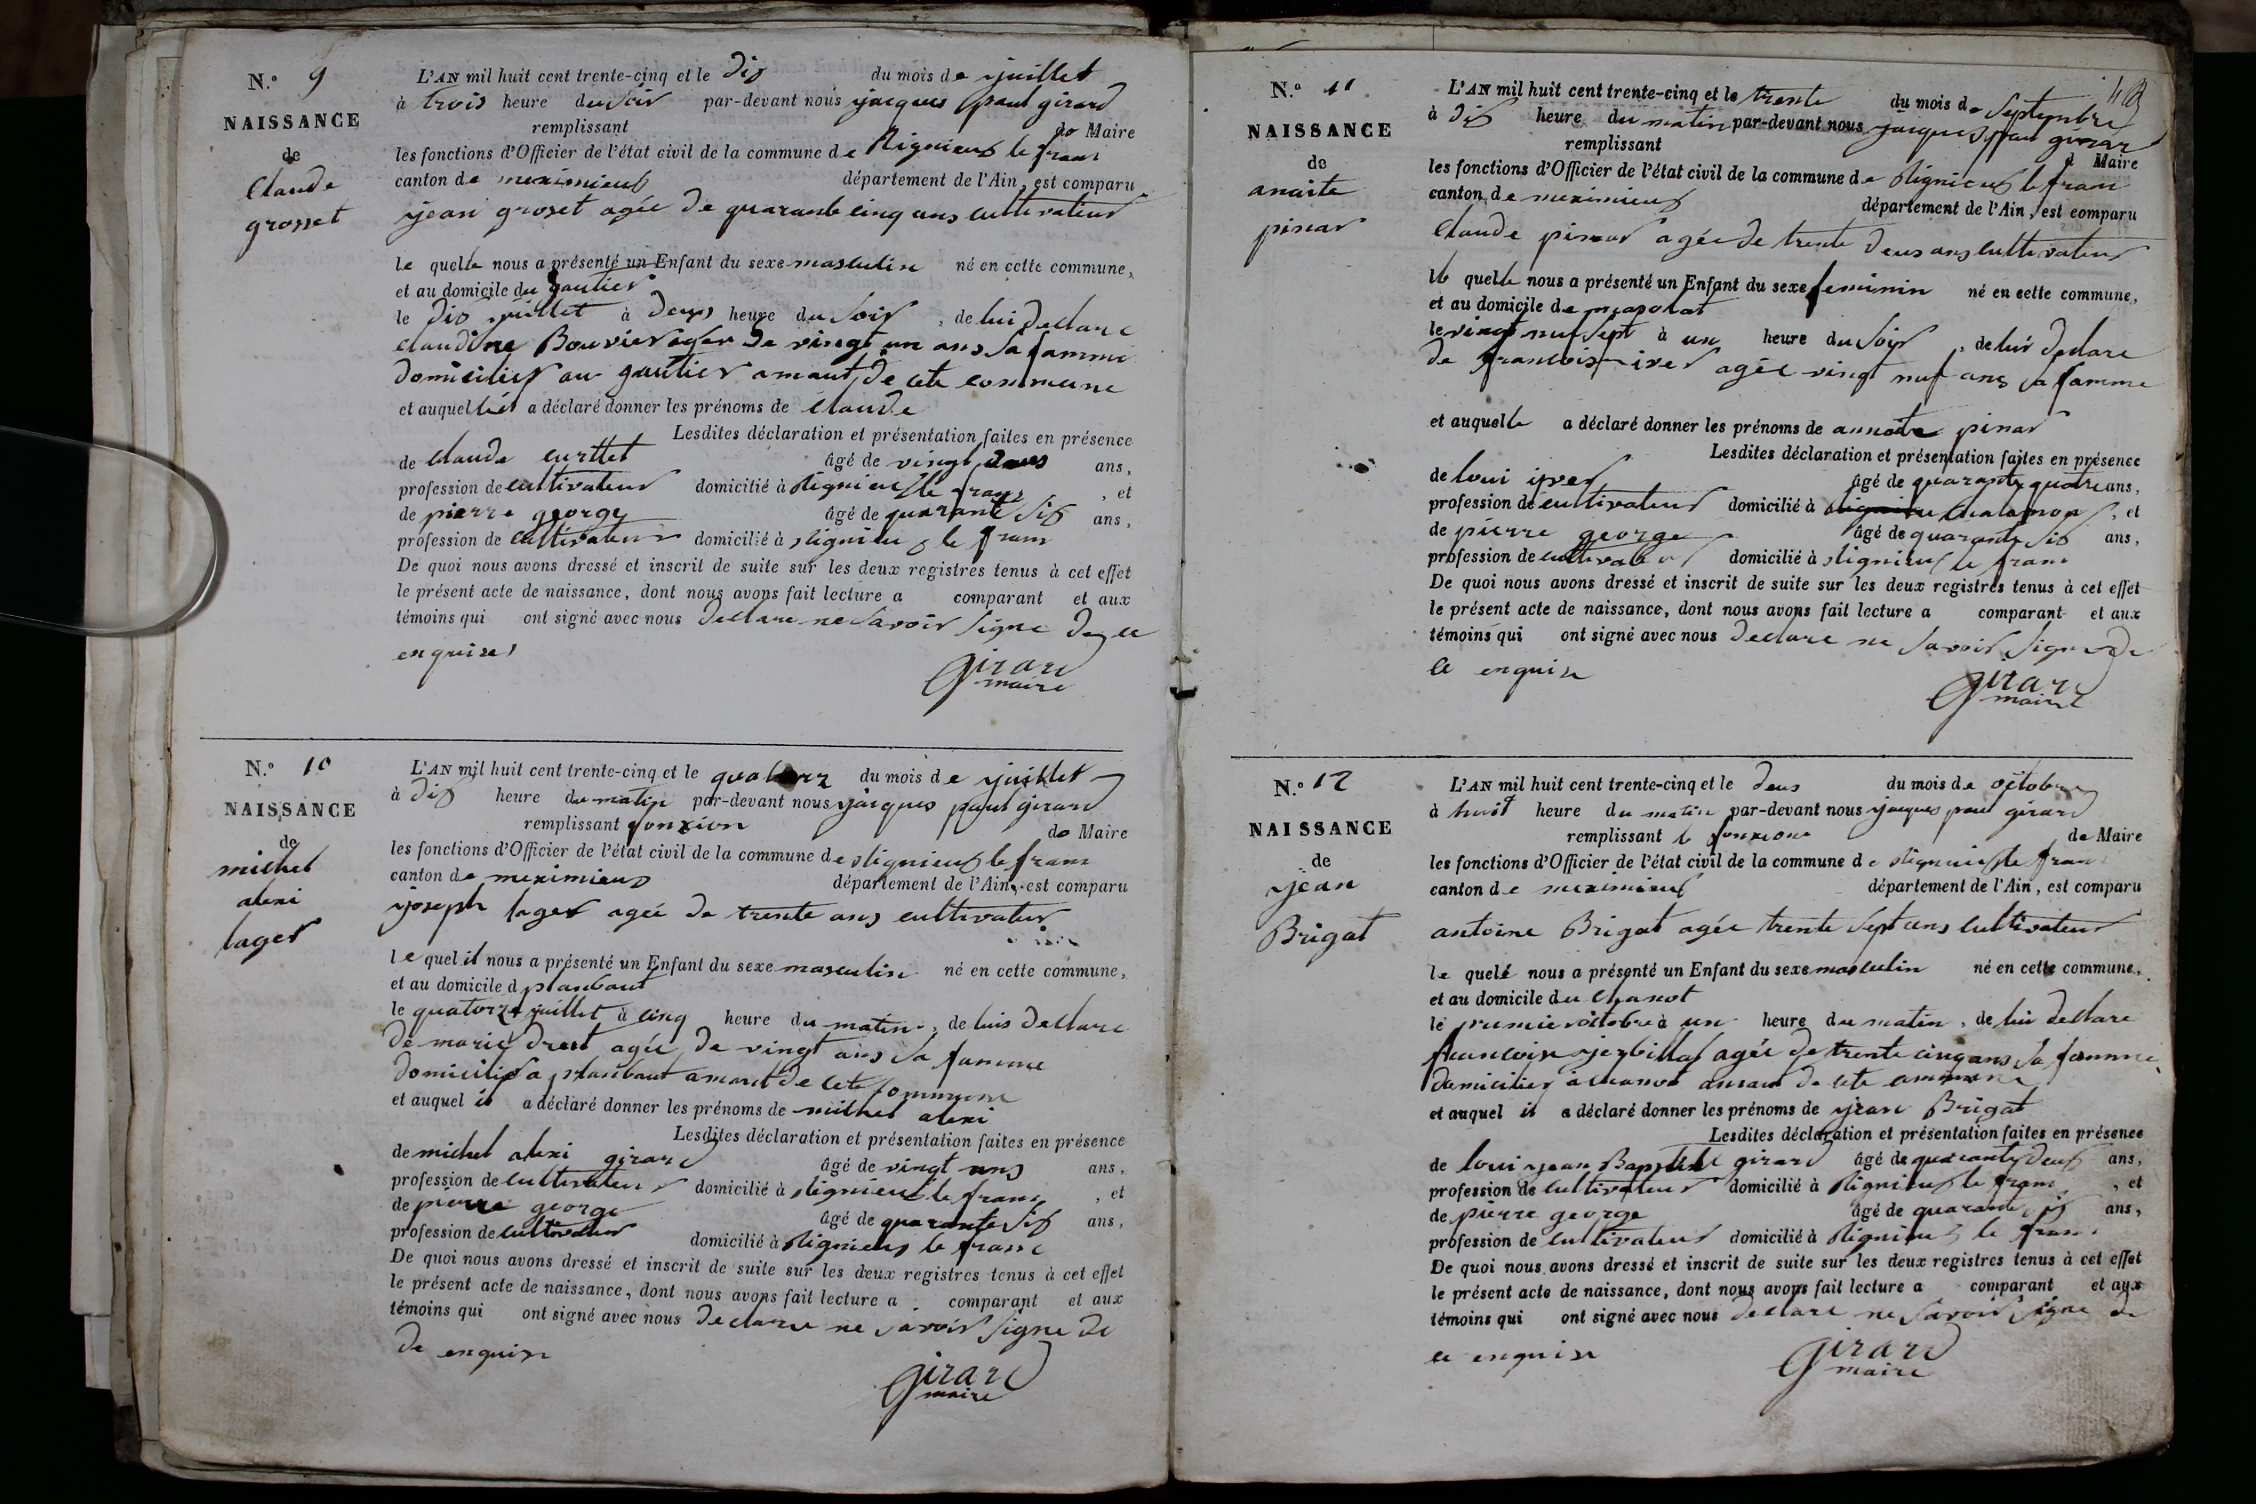 N.o 9
NAISSANCE
de
Claude
grosset
L'AN mil huit cent trente-cinq et le dix du mois de juillet
à trois heure du soir par-devant nous jacques paul girard
remplissant de Maire
les fonctions d'Officier de l'état civil de la commune de Rignieux le franc
canton de meximieux département de l'Ain, est comparu
jean groset agée de quarante cinq ans cultivateur
le quelle nous a présenté un Enfant du sexe masculin né en cette commune,
et au domicile du gautier
le dix juillet à deux heure du soir, de lui declare
claudine Bouvier agée de vingt un ans sa famme
domicilier au gautier amaut de cete commune
et auquel a déclaré donner les prénoms de claude
Lesdites déclaration et présentation faites en présence
de claude curttet âgé de vingt deux ans,
profession de cultivateur domicilié à Rignieux le franc, et
de pierre george âgé de quarante six ans,
profession de cultivateur domicilié à rignieux le franc
De quoi nous avons dressé et inscrit de suite sur les deux registres tenus à cet effet
le présent acte de naissance, dont nous avons fait lecture a comparant et aux
témoins qui ont signé avec nous declare ne savoir signe de ce
enquise
girard
maire
N.o 10
NAISSANCE
de
michel
alexi
lager
L'AN mil huit cent trente-cinq et le quatorz du mois de juillet
à dix heure du matin par-devant nous jacques paul girard
remplissant fonxion de Maire
les fonctions d'Officier de l'état civil de la commune de rignieux le franc
canton de meximieux département de l'Ain, est comparu
joseph lager agée de trente ans cultivateur
le quel il nous a présenté un Enfant du sexe masculin né en cette commune,
et au domicile d planbaut
le quatorze juillet à cinq heure du matin, de luis declare
de marie agée de vingt ans sa famme
domicilier a planbaut amaut de cete commune
et auquel il a déclaré donner les prénoms de michel alexi
Lesdites déclaration et présentation faites en présence
de michel alexi girard âgé de vingt ans ans,
profession de cultivateur domicilié à rignieux le franc, et
de pierre george âgé de quarante six ans,
profession de cultivateur domicilié à Rignieux le franc
De quoi nous avons dressé et inscrit de suite sur les deux registres tenus à cet effet
le présent acte de naissance, dont nous avons fait lecture a comparant et aux
témoins qui ont signé avec nous declare ne savoir signe de
de enquise
girard
maire
N.o 11
NAISSANCE
de
anaite
pinar
L'AN mil huit cent trente-cinq et le trente du mois de Septembre
à dix heure du matin par-devant nous jacques paul girard
remplissant d Maire
les fonctions d'Officier de l'état civil de la commune de Rignieux le franc
canton de meximieux département de l'Ain, est comparu
Claude pinar agée de trente deux ans cultivateur
le quelle nous a présenté un Enfant du sexe feminin né en cette commune,
et au domicile de
le vingt nuf sept à un heure du soir, de lui declare
de francoise iver agée vingt nuf ans sa famme
et auquelle a déclaré donner les prénoms de annaite pinar
Lesdites déclaration et présentation faites en présence
de loui iver âgé de quarante quatre ans,
profession de cultivateur domicilié à chalamon, et
de pierre george âgé de quarante six ans,
profession de cultivateur domicilié à rignieux le franc
De quoi nous avons dressé et inscrit de suite sur les deux registres tenus à cet effet
le présent acte de naissance, dont nous avons fait lecture a comparant et aux
témoins qui ont signé avec nous declare ne savoir signe de
ce enquise
girard
maire
N.o 12
NAISSANCE
de
jean
Brigat
L'AN mil huit cent trente-cinq et le deux du mois de octobre
à huit heure du matin par-devant nous jacques paul girard
remplissant l fonxione de Maire
les fonctions d'Officier de l'état civil de la commune de rignieux le franc
canton de meximieux département de l'Ain, est comparu
antoine Brigat agée trente sept ans cultivateur
le quelé nous a présenté un Enfant du sexe masculin né en cette commune,
et au domicile du chanot
le premier octobre à un heure du matin, de lui declare
francoise jerbillas agée de trente cinq ans sa famme
domicilier a chanot amaut de cete commune
et auquel il a déclaré donner les prénoms de jean Brigat
Lesdites déclaration et présentation faites en présence
de loui jean Baptiste girard âgé de quarante deux ans,
profession de cultivateur domicilié à Rignieux le franc, et
de pierre george âgé de quarante six ans,
profession de cultivateur domicilié à Rignieux le franc
De quoi nous avons dressé et inscrit de suite sur les deux registres tenus à cet effet
le présent acte de naissance, dont nous avons fait lecture a comparant et aux
témoins qui ont signé avec nous declare ne savoir signe de
ce enquise
girard
maire